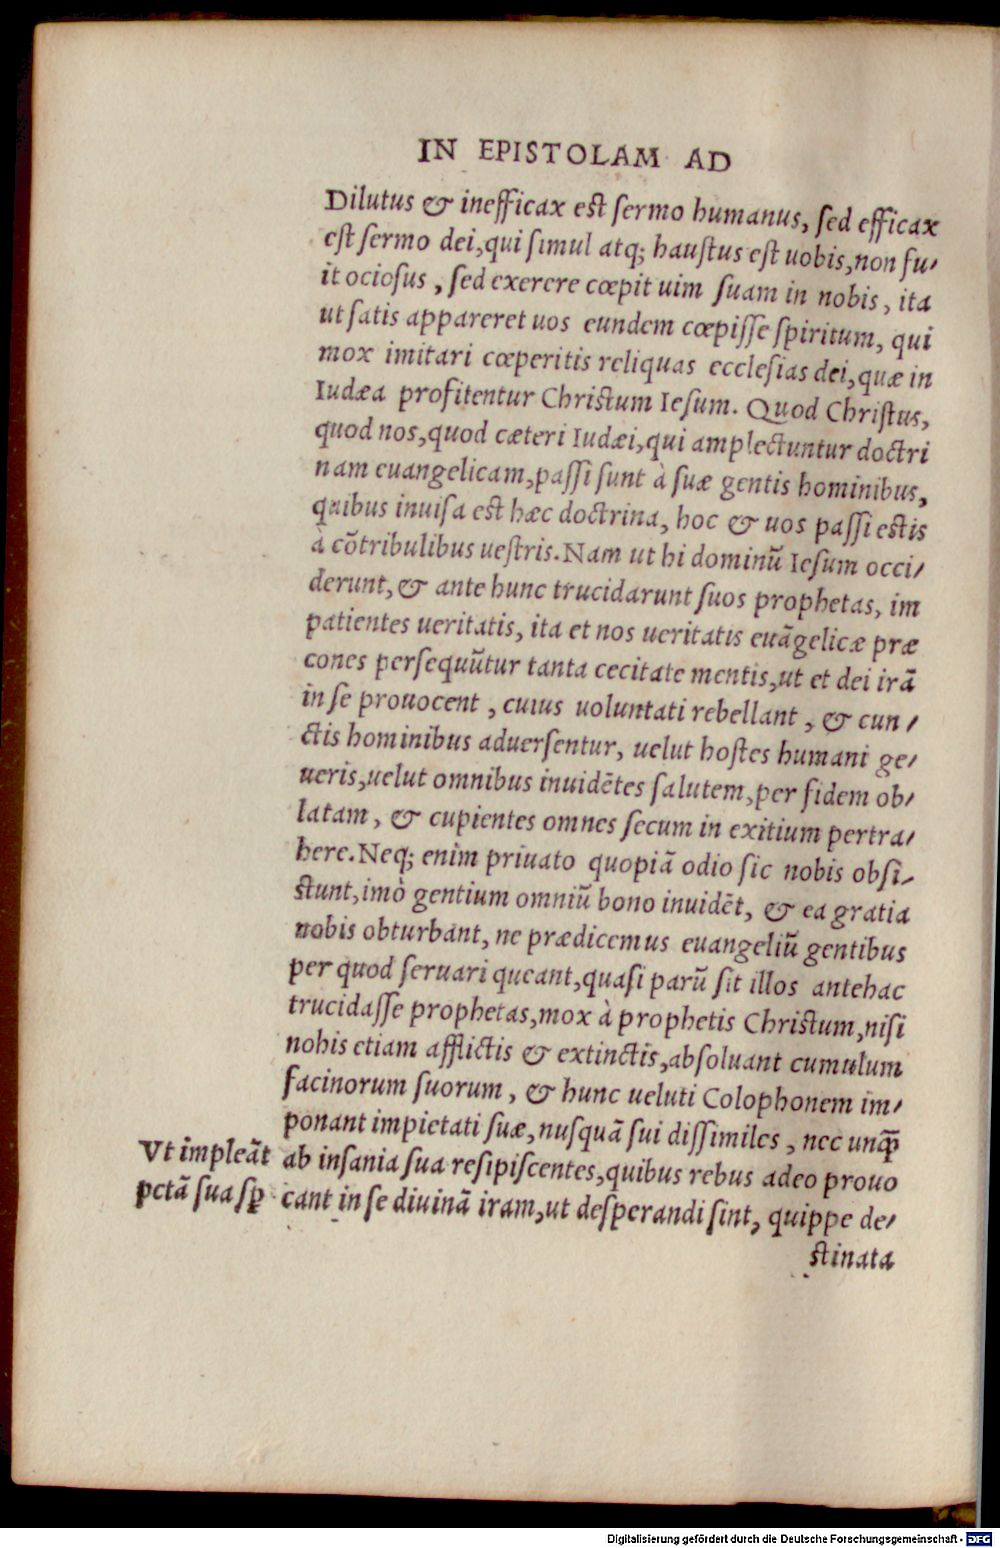 IN EPISTOLAM AD
Dilutus & inefficax est sermo humanus, sed efficax
est sermo dei,qui simul atq; haustus est uobis,non fu-
it ociosus, sed exerere cœpit uim suam in nobis, ita
ut satis appareret uos eundem cœpisse spiritum, qui
mox imitari cœperitis reliquas ecclesias dei,quæ in
Iudæa profitentur Christum Iesum. Quod Christus,
quod nos,quod cæteri Iudæi,qui amplectuntur doctri
nam euangelicam,passi sunt à suæ gentis hominibus,
quibus inuisa est hæc doctrina, hoc & uos passi estis
a cōtribulibus uestris.Nam ut hi dominū Iesum occi-
derunt,& ante hunc trucidarunt suos prophetas, im
patientes ueritatis, ita et nos ueritatis euāgelicæ præ
cones persequūtur tanta cecitate mentis,ut et dei irā
in se prouocent, cuius uoluntati rebellant, & cun-
ctis hominibus aduersentur, uelut hostes humani ge-
ueris,uelut omnibus inuidētes salutem,per fidem ob-
latam, & cupientes omnes secum in exitium pertra-
here.Neq; enim priuato quopiā odio sic nobis obsi-
stunt,imò gentium omniū bono inuidēt, & ea gratia
nobis obturbant, ne prædicemus euangeliū gentibus
per quod seruari queant,quasi parū sit illos antehac
trucidasse prophetas,mox à prophetis Christum,nisi
nobis etiam afflictis & extinctis,absoluant cumulum
facinorum suorum, & hunc ueluti Colophonem im-
ponant impietati suæ,nusquā sui dissimiles, nec unq̄
Vt impleāt ab insania sua resipiscentes,quibus rebus adeo prouo
pctā sua sꝑ cant in se diuinā iram,ut desperandi sint, quippe de-
stinata
Digitalisierung gefördert durch die Deutsche Forschungsgemeinschaft - DFG